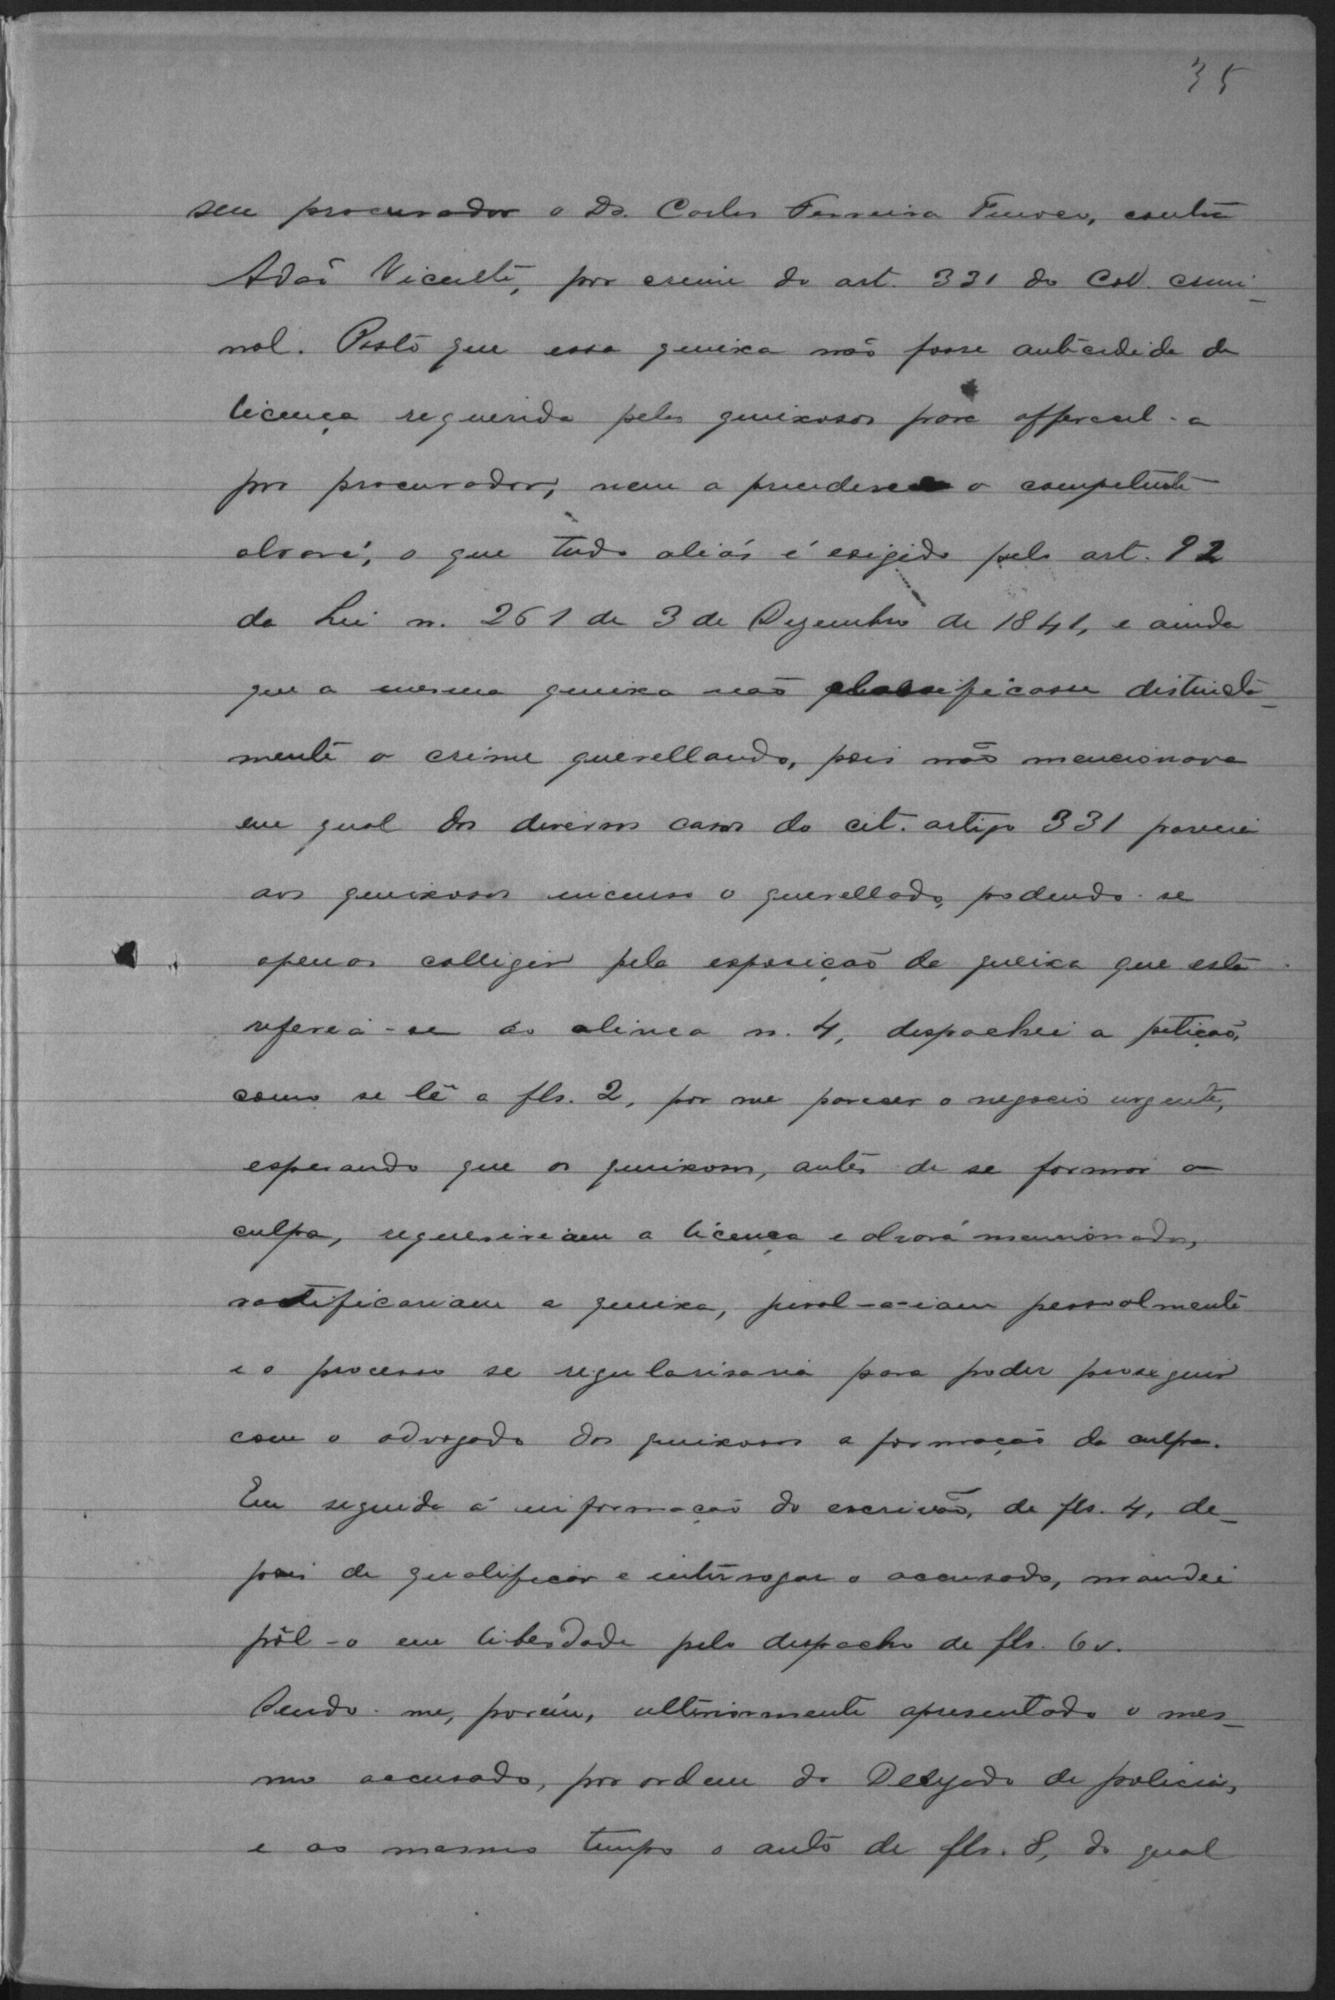 35
seu procurador o Dr. Carlos Ferreira , contra
Adaõ Vicente, por crime do art. 331 do Cod. crimi-
nal. Posto que essa queixa naõ fosse antecedida da
licença requerida pelos queixosos para offerecel-a
por procurador, nem a precedesse o competente
alvará, o que tudo aliás é exigido pelo art. 92
da Lei n. 261 de 3 de Dezembro de 1841, e ainda
que a mesma queixa naõ classificasse distincta-
mente o crime querellando, pois naõ mencionava
em qual dos diversos casos do cit. artigo 331 parecia
aos queixosos incurso o querellado, podendo-se
apenas colligir pela exposiçaõ da queixa que esta
referia-se ao alinea n. 4, despachei a petiçaõ,
como se lê a fls. 2, por me parecer o negocio urgente,
esperando que os queixosos, antes de se formar a
culpa, requereriam a licença e alvará mencionados,
ratificariam a queixa, jural-a-iam pessoalmente
e o processo se regularisaria para poder proseguir
com o advogado dos queixosos a formaçaõ da culpa.
Em seguida á informaçaõ do escrivaõ, de fls. 4, de-
pois de qualificar e interrogar o accusado, mandei
pôl-o em liberdade pelo despacho de fls. 6v.
Sendo-me, porém, ulteriormente apresentado o mes-
mo accusado, por ordem do Delegado de policia,
e ao mesmo tempo o auto de fls. 8, do qual